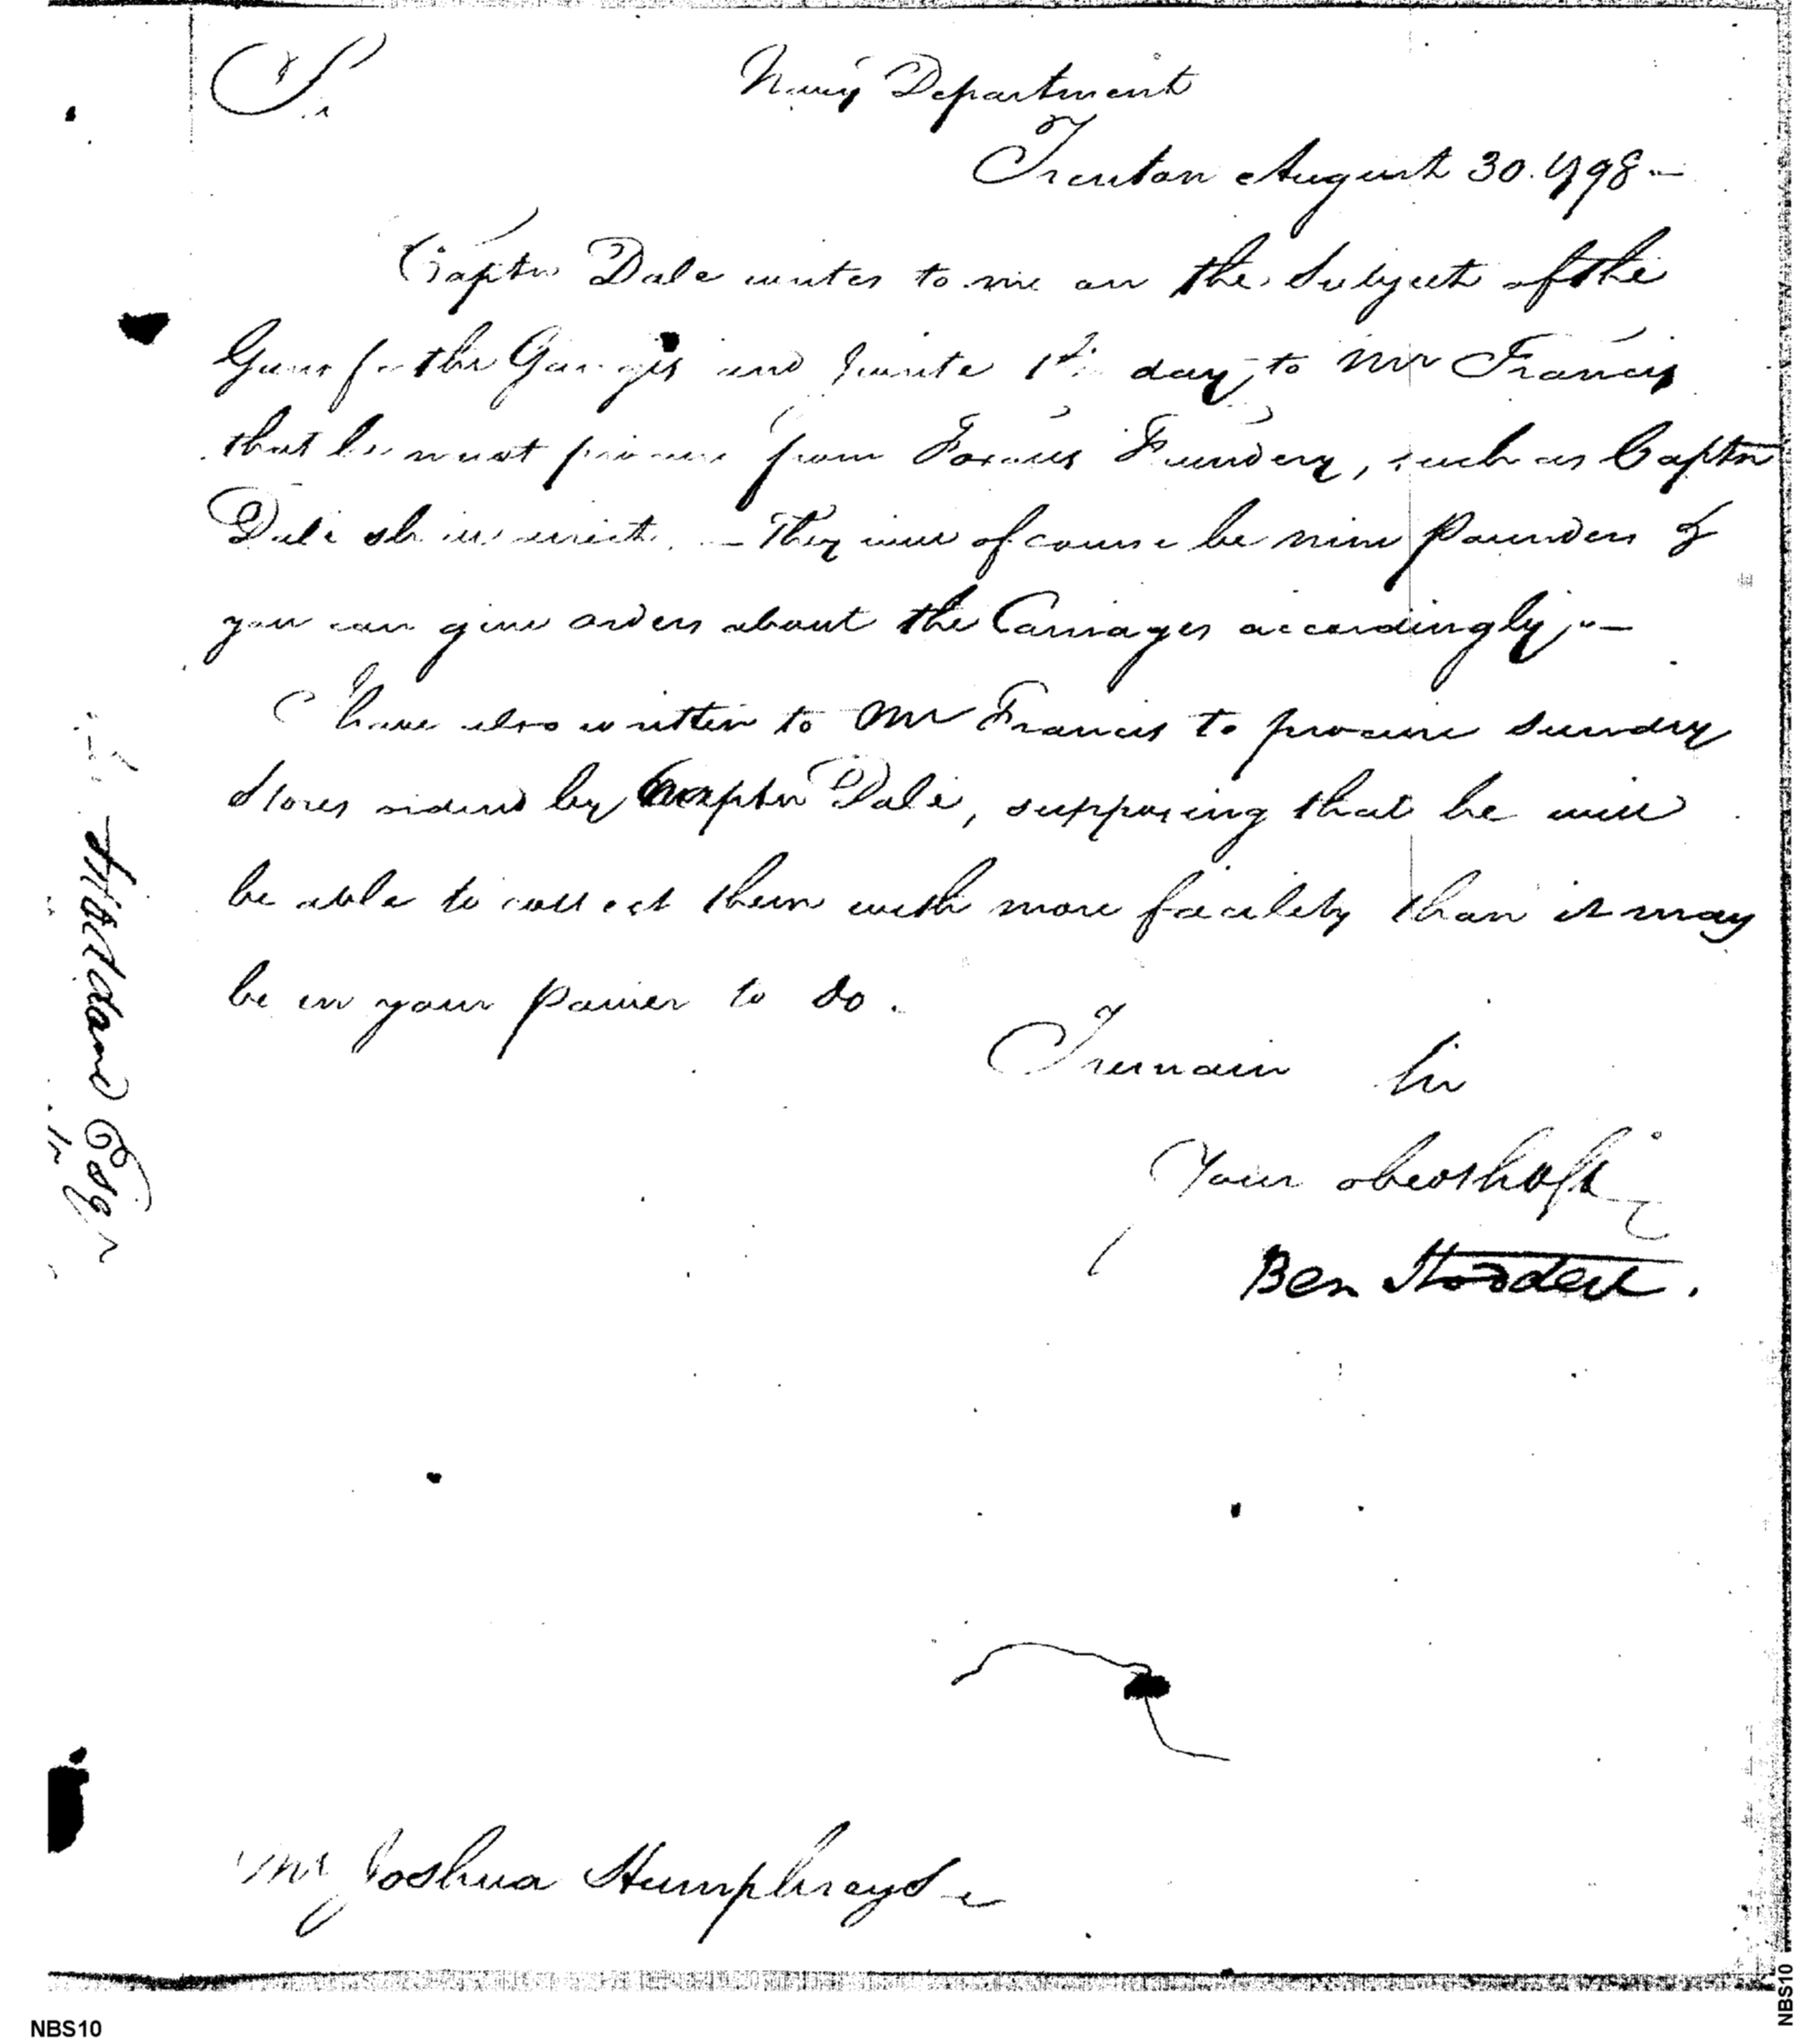 Sir
Navy Department
Trenton August 30. 1798.—
Captn Dale writes to me on the Subject of the
Guns for the Ganges and I write this day to Mr Francis
that he must procure from Foxall's Foundery, such as Captn
Dale shall direct. — They will of course be nine Pounders &
you can give orders about the Carriages accordingly.—
I have also written to Mr Francis to procure sundry
Stores ordered by Captn Dale, supposing that he will
be able to collect them with more facility than it may
be in your power to do.
I remain Sir
Your obedt hble St
Ben Stoddert.
Mr Joshua Humphreys
Esqr
NBS10
NBS10